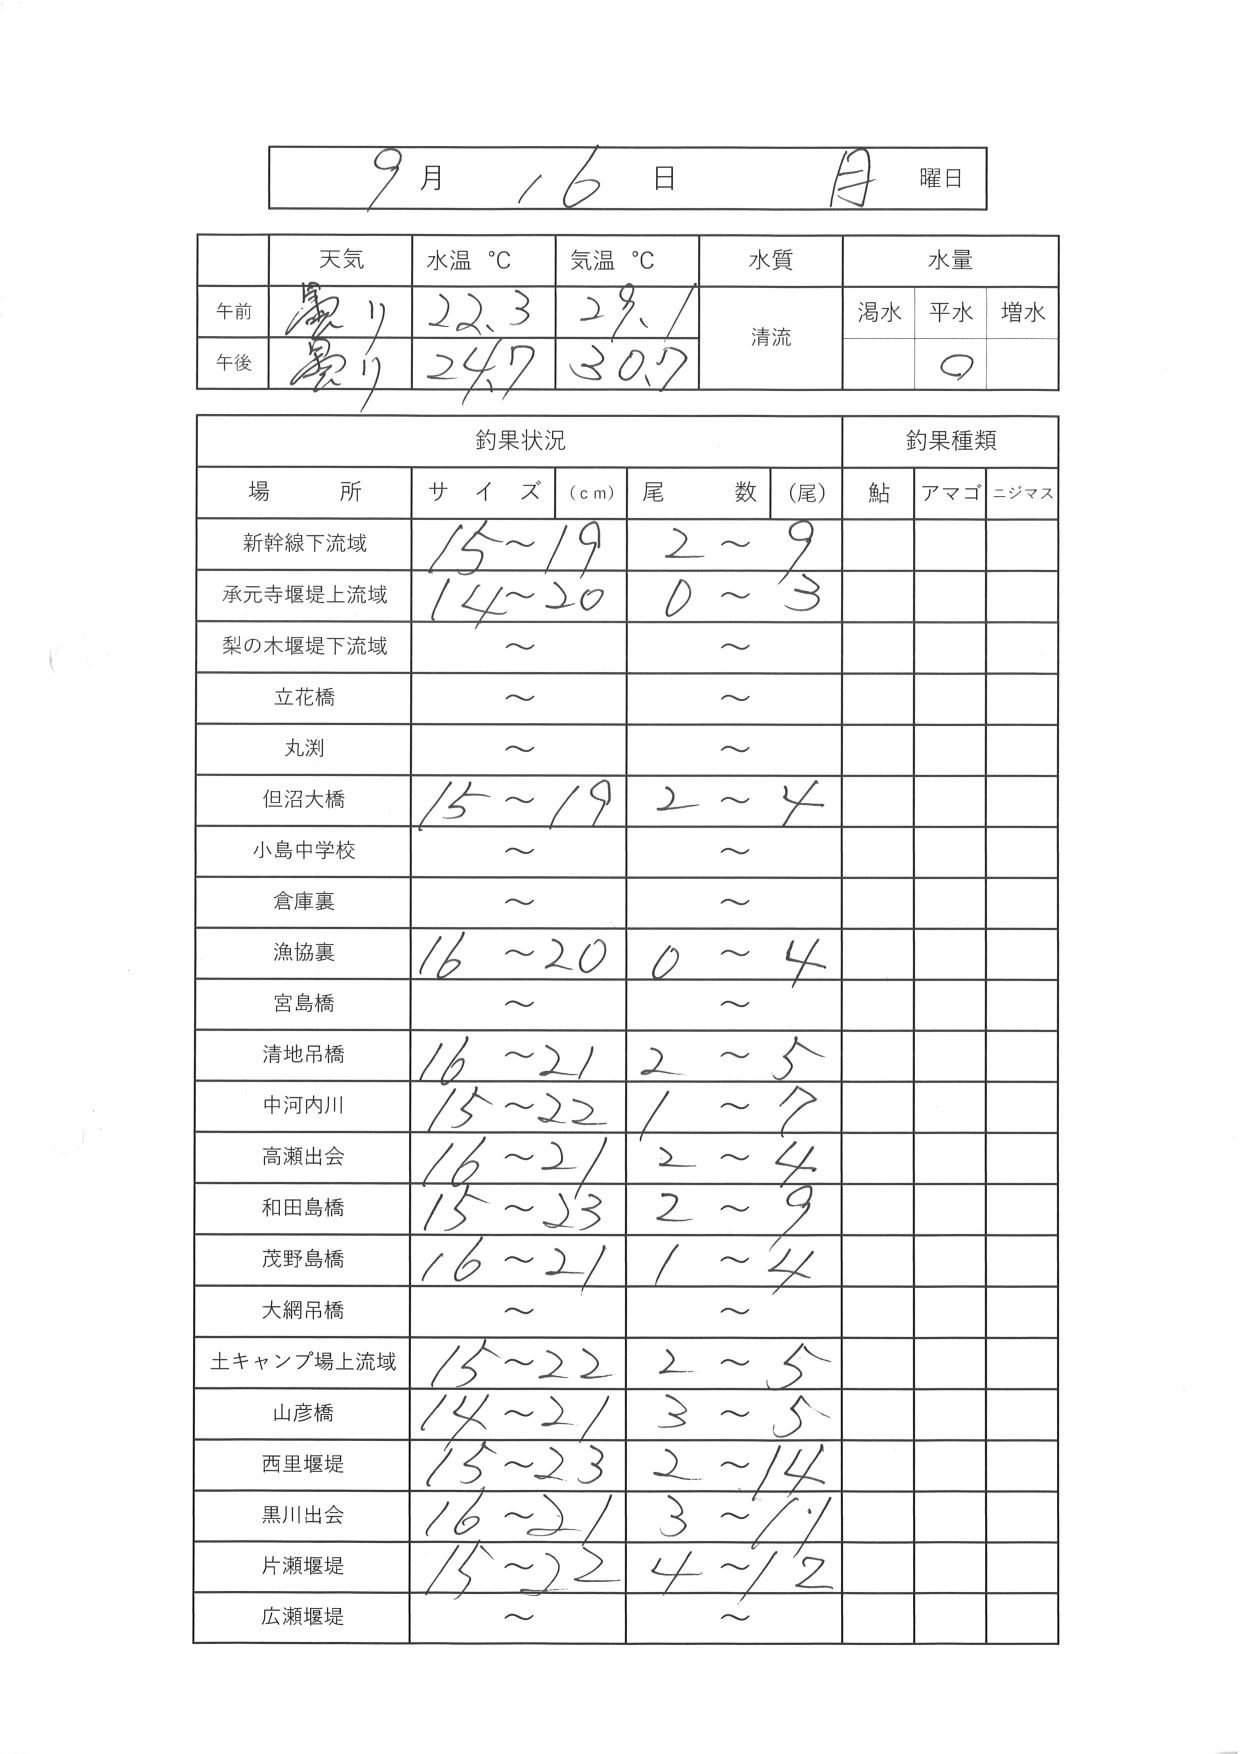 9月 16日 月 曜日
天気 水温 ℃ 気温 ℃ 水質 水量
午前 曇り 22.3 29.1 清流 渇水 平水 増水
午後 曇り 24.7 30.7 ○
釣果状況 釣果種類
場 所 サ イ ズ (cm) 尾 数 (尾) 鮎 アマゴ ニジマス
新幹線下流域 15～19 2～9
承元寺堰堤上流域 14～20 0～3
梨の木堰堤下流域 ～ ～
立花橋 ～ ～
丸渕 ～ ～
但沼大橋 15～19 2～4
小島中学校 ～ ～
倉庫裏 ～ ～
漁協裏 16～20 0～4
宮島橋 ～ ～
清地吊橋 16～21 2～5
中河内川 15～22 1～7
高瀬出会 16～21 2～4
和田島橋 15～23 2～9
茂野島橋 16～21 1～4
大網吊橋 ～ ～
土キャンプ場上流域 15～22 2～5
山彦橋 14～21 3～5
西里堰堤 15～23 2～14
黒川出会 16～21 3～11
片瀬堰堤 15～22 4～12
広瀬堰堤 ～ ～